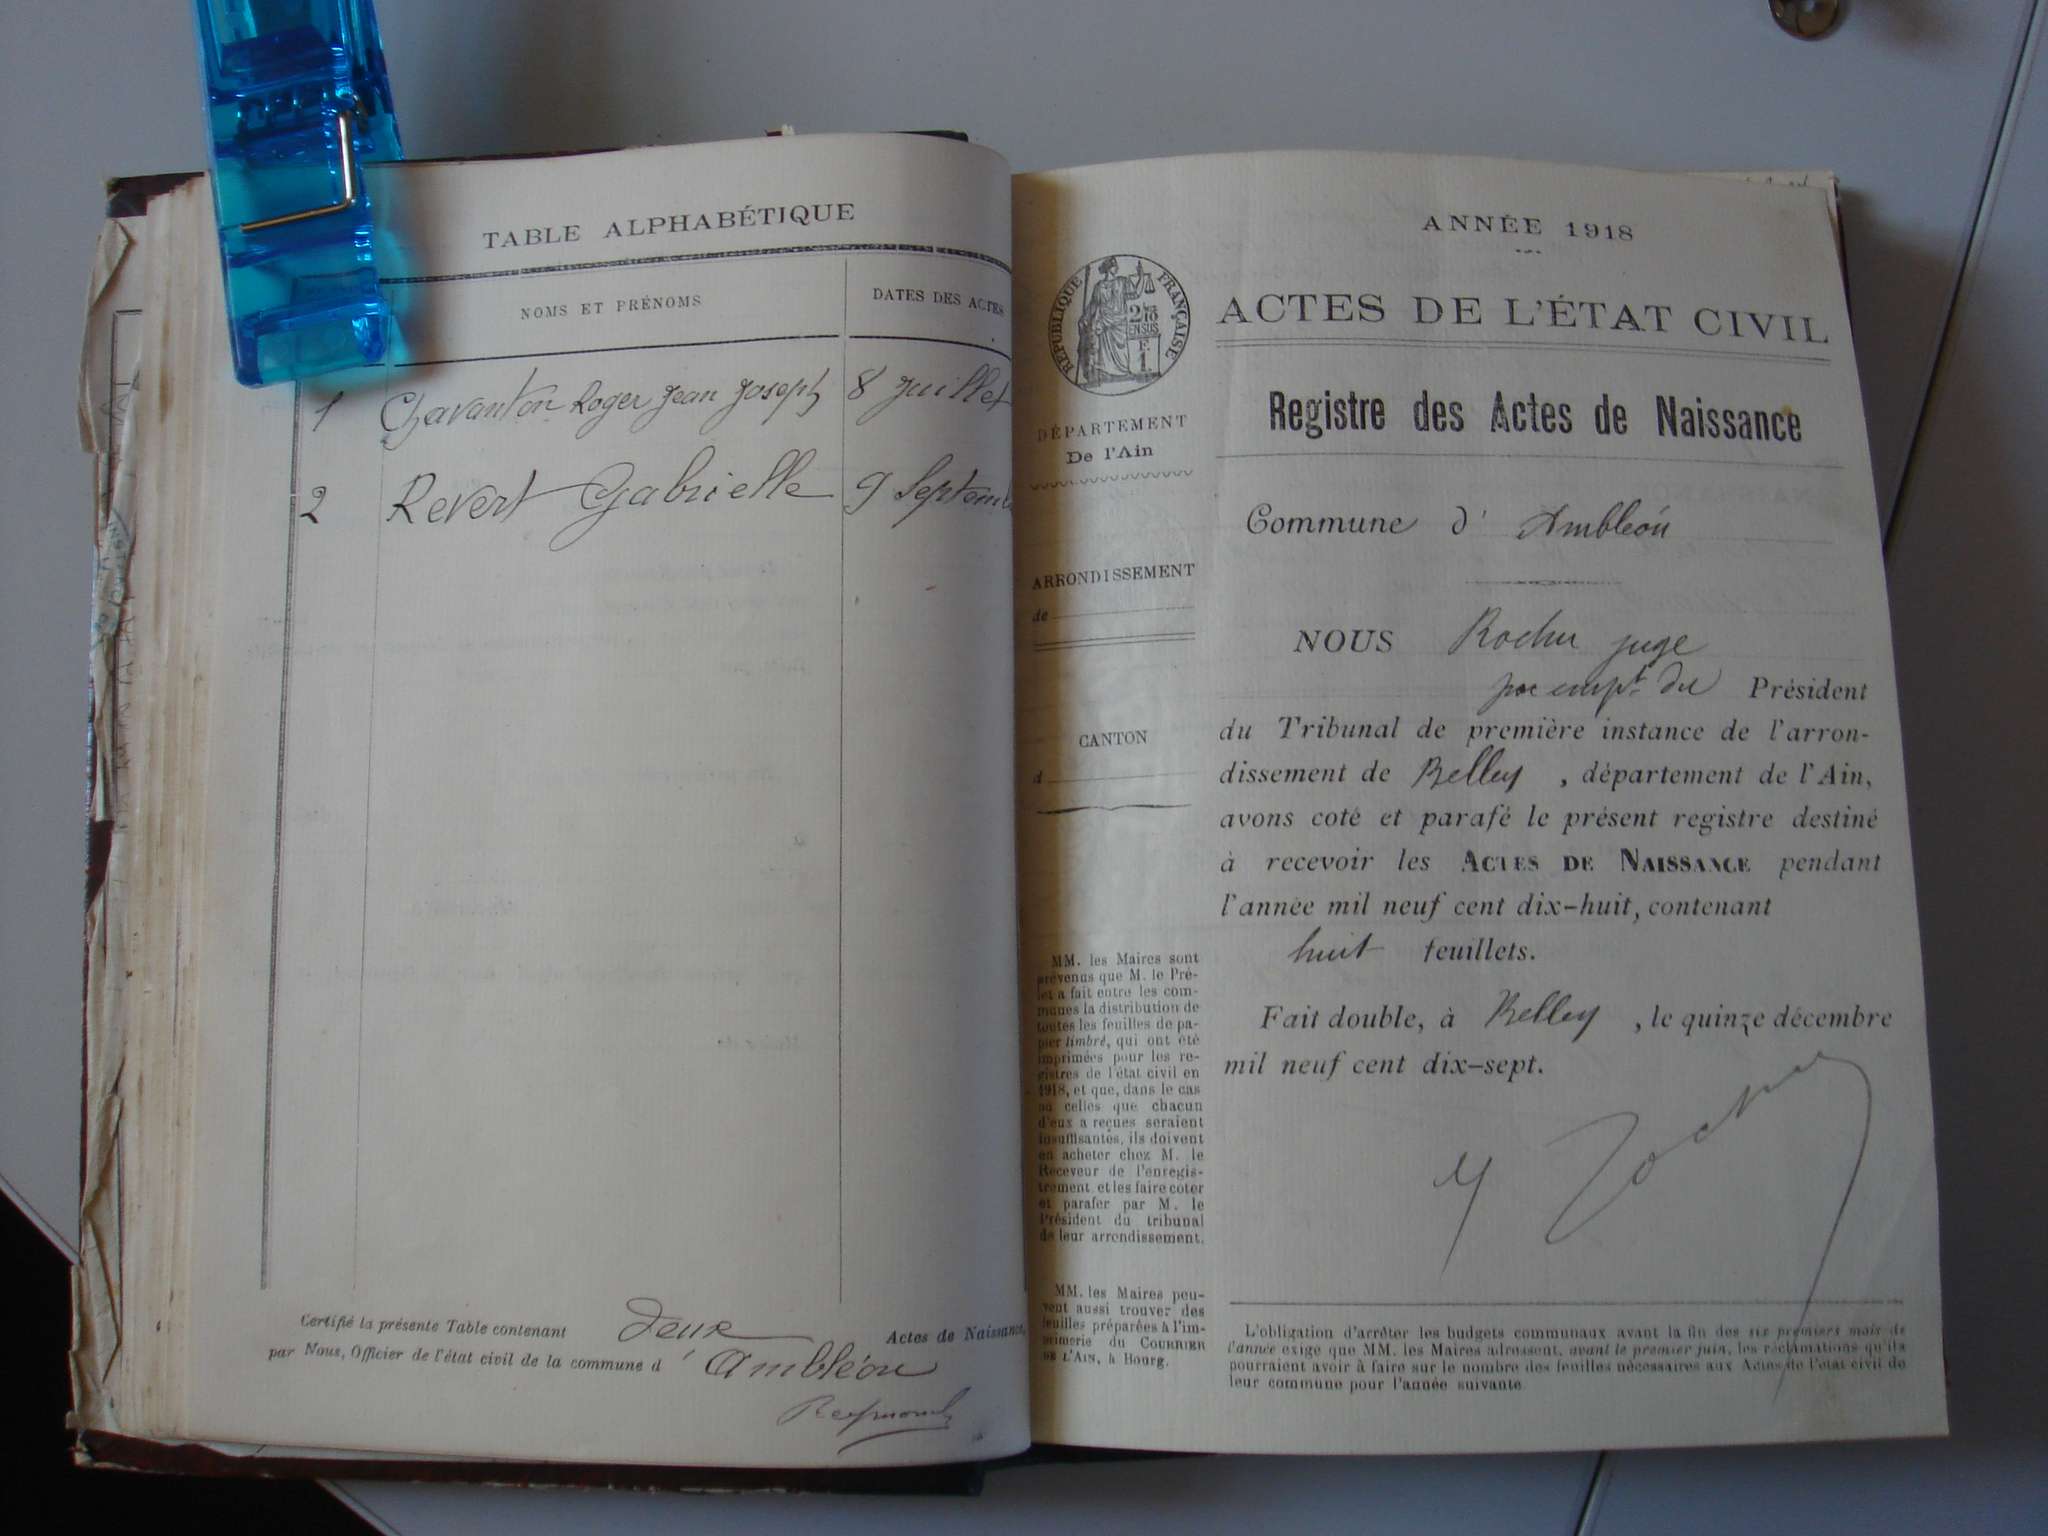 TABLE ALPHABÉTIQUE
NOMS ET PRÉNOMS
DATES DES ACTES
1 Chavanton Roger Jean Joseph 8 Juillet
2 Revert Gabrielle 9 Septem
Certifié la présente Table contenant Deux Actes de Naissance,
par Nous, Officier de l'état civil de la commune d' Ambléon
Reymond
ANNÉE 1918
RÉPUBLIQUE FRANÇAISE
2/10
EN SUS
F.
1.
DÉPARTEMENT
De l'Ain
ARRONDISSEMENT
de
CANTON
d
MM. les Maires sont
prévenus que M. le Pré-
fet a fait entre les com-
munes la distribution de
toutes les feuilles de pa-
pier timbré, qui ont été
imprimées pour les re-
gistres de l'état civil en
1918, et que, dans le cas
où celles que chacun
d'eux a reçues seraient
insuffisantes, ils doivent
en acheter chez M. le
Receveur de l'enregis-
trement et les faire coter
et parafer par M. le
Président du tribunal
de leur arrondissement.
MM. les Maires peu-
vent aussi trouver des
feuilles préparées à l'im-
primerie du COURRIER
DE L'AIN, à Bourg.
ACTES DE L'ÉTAT CIVIL
Registre des Actes de Naissance
Commune d' Ambléon
NOUS Rocher juge
par empt. du Président
du Tribunal de première instance de l'arron-
dissement de Belley, département de l'Ain,
avons coté et parafé le présent registre destiné
à recevoir les ACTES DE NAISSANCE pendant
l'année mil neuf cent dix-huit, contenant
huit feuillets.
Fait double, à Belley, le quinze décembre
mil neuf cent dix-sept.
Rocher
L'obligation d'arrêter les budgets communaux avant la fin des six premiers mois de
l'année exige que MM. les Maires adressent, avant le premier juin, les réclamations qu'ils
pourraient avoir à faire sur le nombre des feuilles nécessaires aux Actes de l'état civil de
leur commune pour l'année suivante